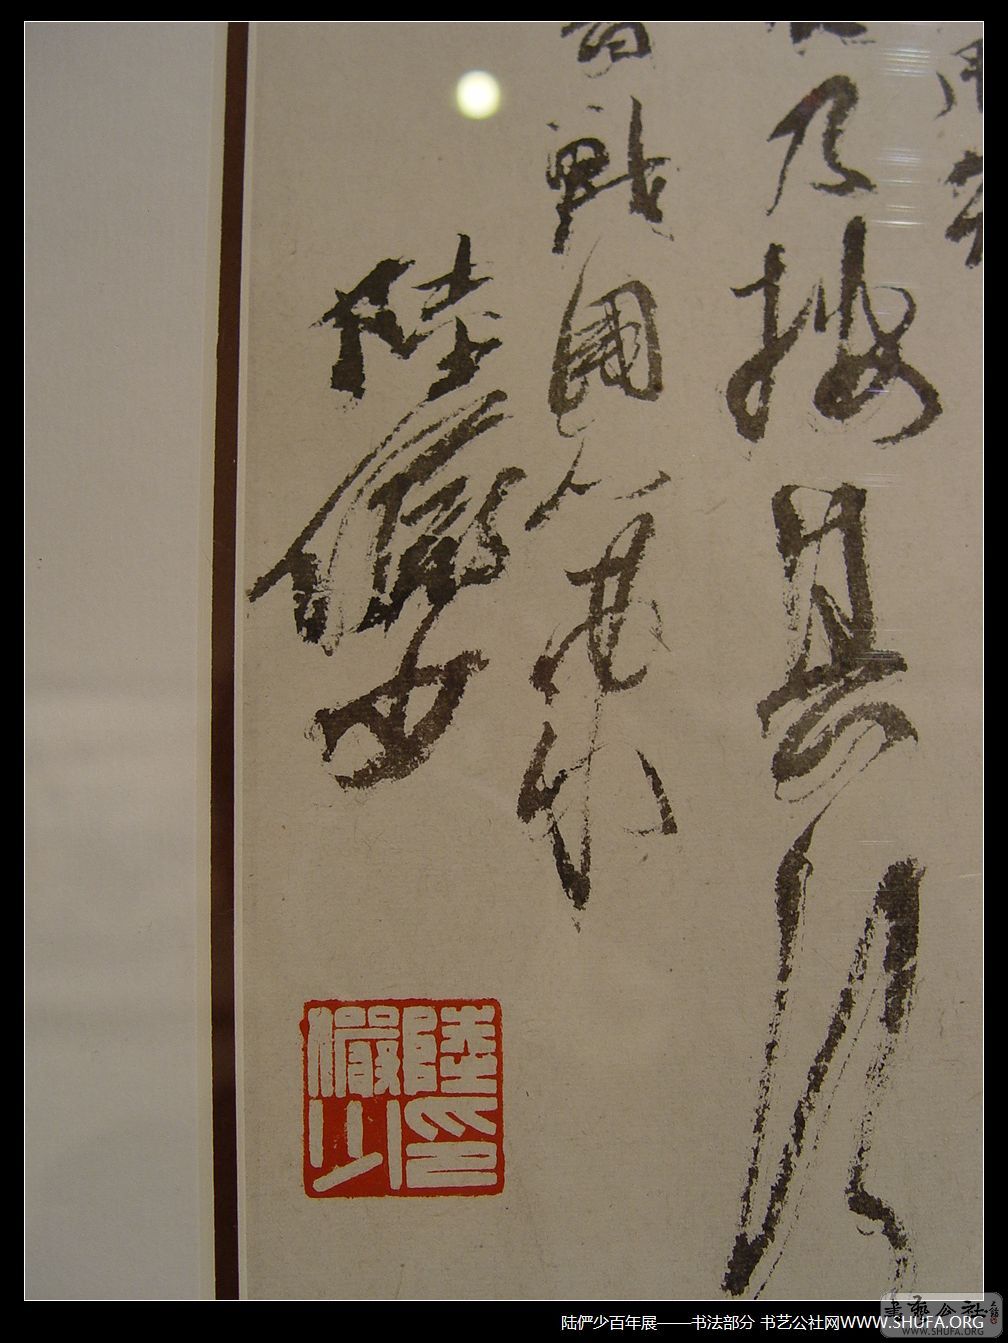 乃按其
戰國策
陸儼少
陸儼少印
陆俨少百年展——书法部分 书艺公社网WWW.SHUFA.ORG
書藝公社
WWW.SHUFA.ORG